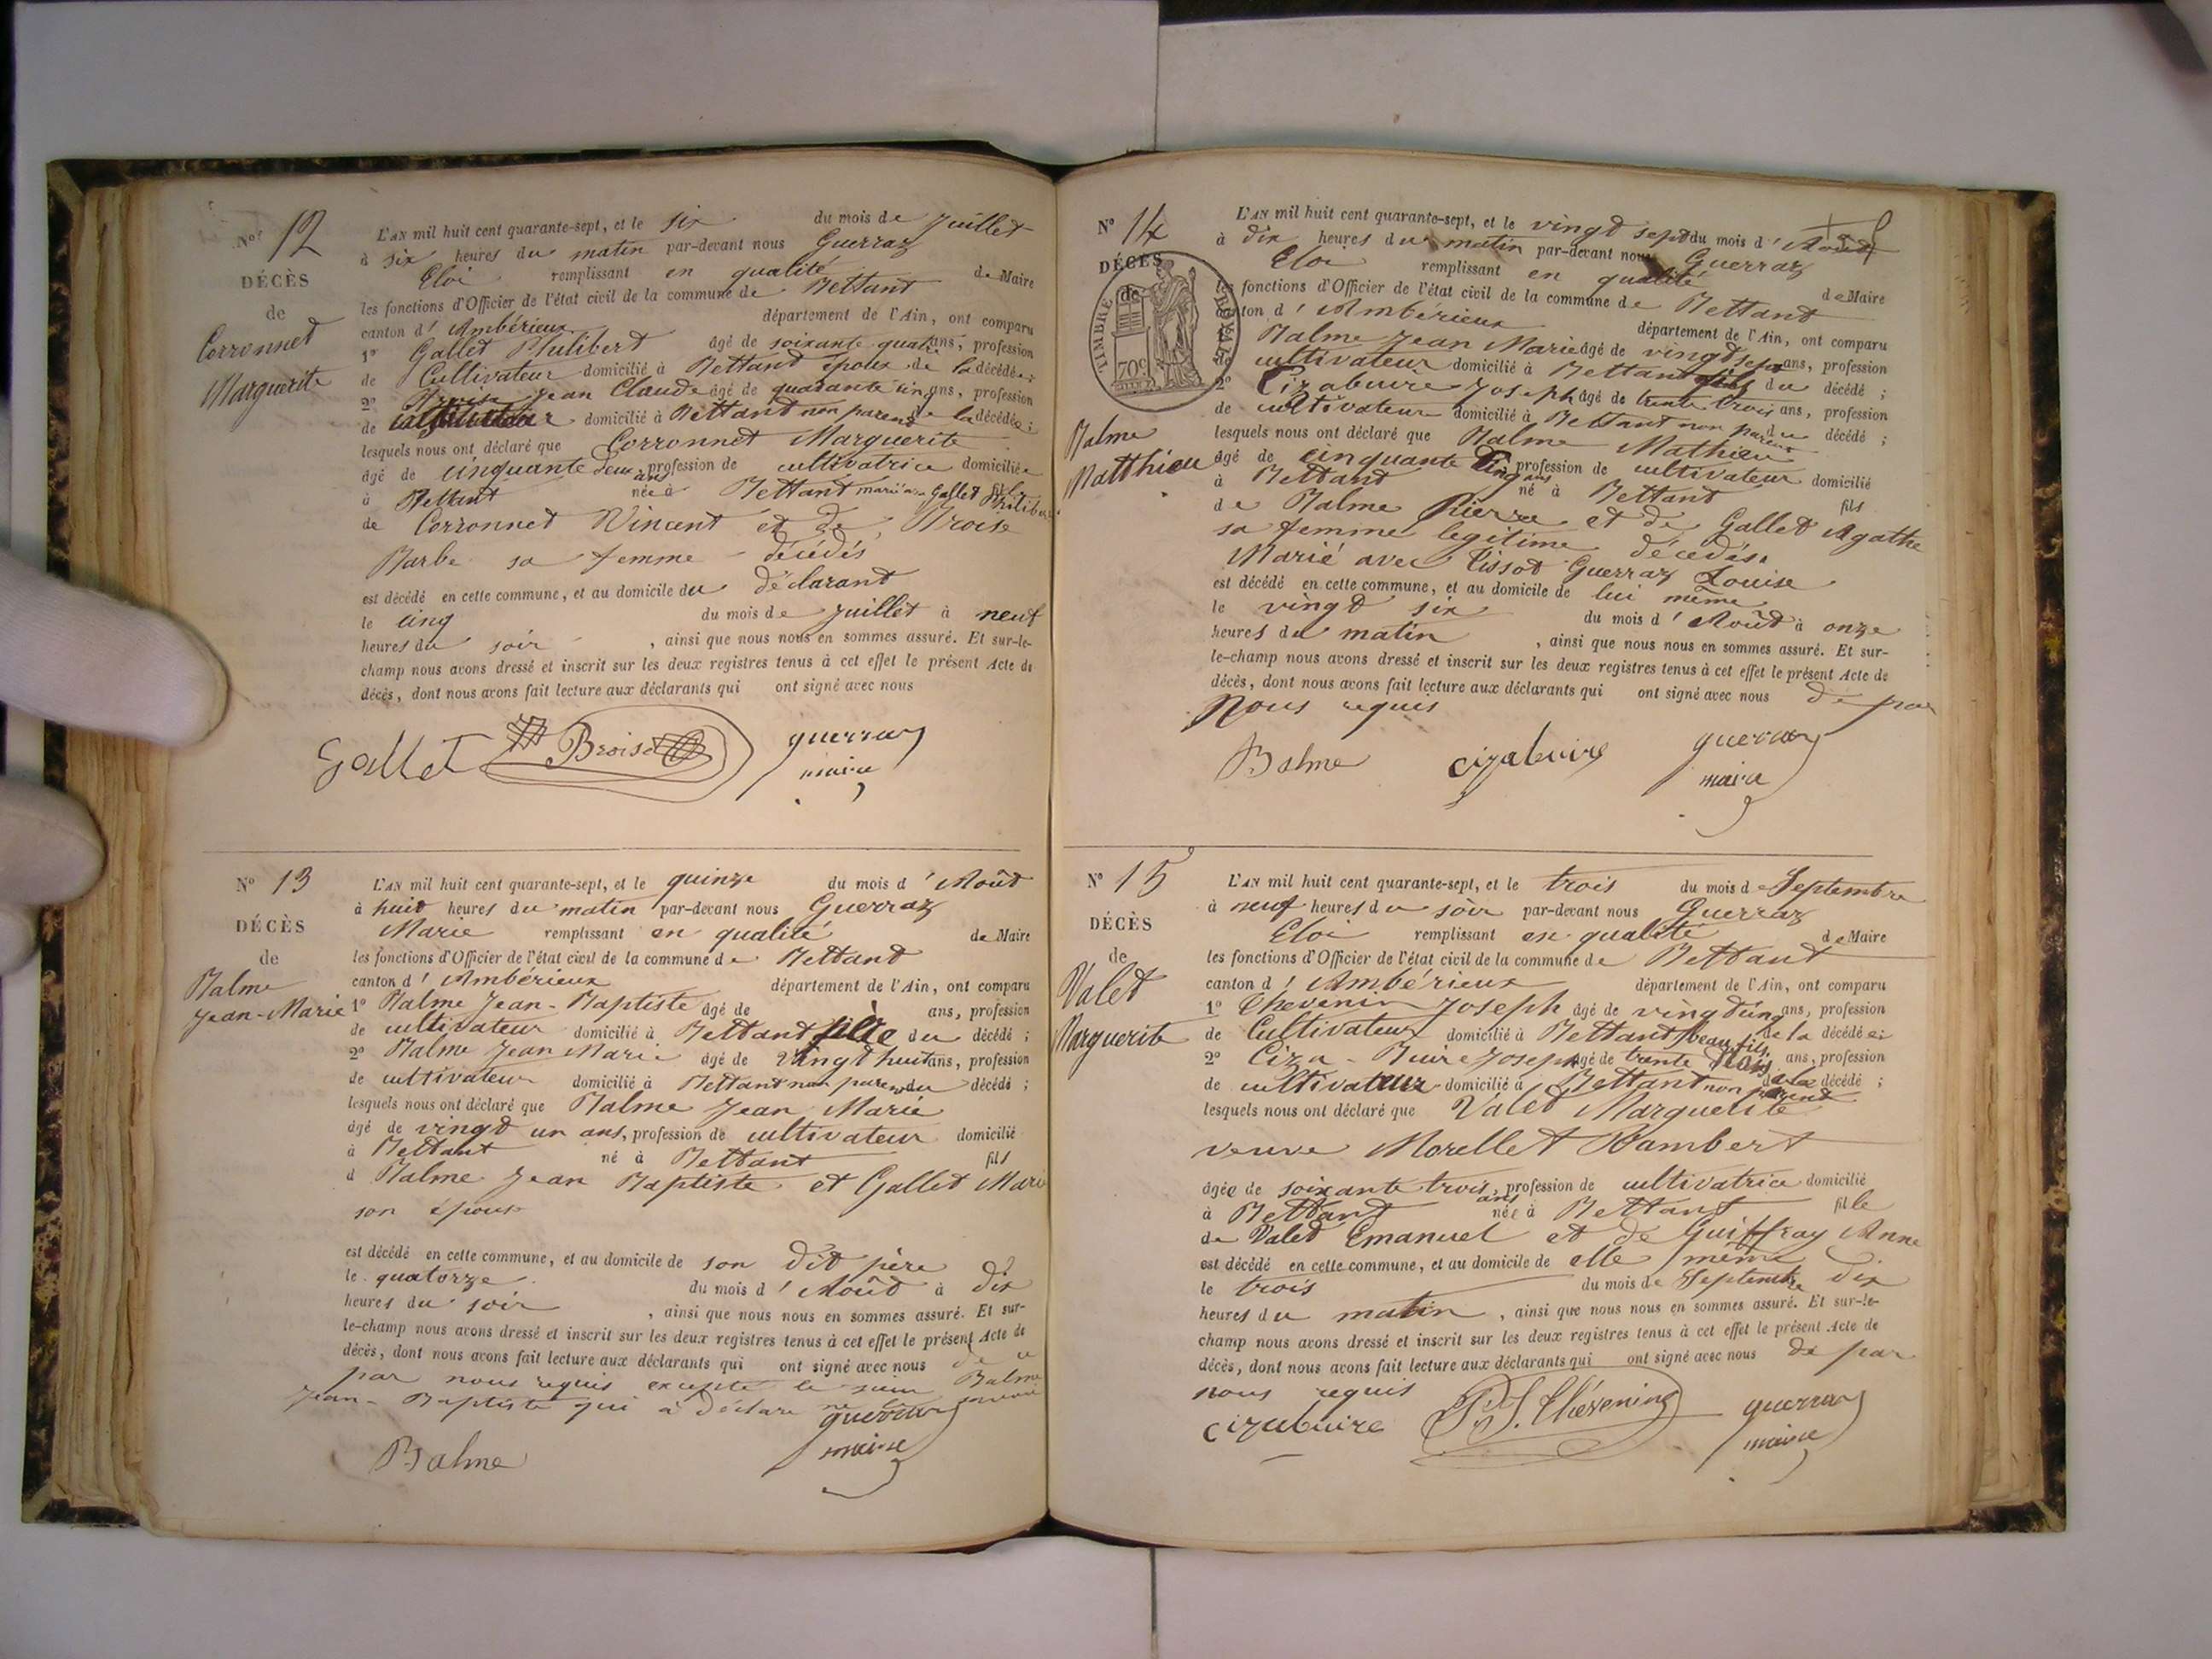 N° 12
DÉCÈS
de
Corronnet
Marguerite
L'AN mil huit cent quarante-sept, et le six du mois de Juillet
à six heures du matin par-devant nous Guerraz
Eloi remplissant en qualité de Maire
les fonctions d'Officier de l'état civil de la commune de Bettant
canton d'Ambérieux département de l'Ain, ont comparu
1° Gallet Philibert âgé de soixante quatre ans, profession
de Cultivateur domicilié à Bettant époux de la décédée;
2° Broise Jean Claude âgé de quarante un ans, profession
de domicilié à Bettant non parent de la décédée;
lesquels nous ont déclaré que Corronnet Marguerite
âgé de cinquante deux ans profession de cultivatrice domiciliée
à Bettant née à Bettant mariée a Gallet Philibert
de Corronnet Vincent et de Broise
Barbe sa femme décédés
est décédé en cette commune, et au domicile du déclarant
le cinq du mois de juillet à neuf
heures du soir, ainsi que nous nous en sommes assuré. Et sur-le-
champ nous avons dressé et inscrit sur les deux registres tenus à cet effet le présent Acte de
décès, dont nous avons fait lecture aux déclarants qui ont signé avec nous
Gallet Broise guerraz
maire
N° 13
DÉCÈS
de
Balme
Jean-Marie
L'AN mil huit cent quarante-sept, et le quinze du mois d'Août
à huit heures du matin par-devant nous Guerraz
Marie remplissant en qualité de Maire
les fonctions d'Officier de l'état civil de la commune de Bettant
canton d'Ambérieux département de l'Ain, ont comparu
1° Balme Jean-Baptiste âgé de ans, profession
de cultivateur domicilié à Bettant père du décédé;
2° Balme Jean Marie âgé de vingt huit ans, profession
de cultivateur domicilié à Bettant non parent du décédé;
lesquels nous ont déclaré que Balme Jean Marie
âgé de vingt un ans, profession de cultivateur domicilié
à Bettant né à Bettant fils
d Balme Jean Baptiste et Gallet Marie
son épouse
est décédé en cette commune, et au domicile de son dit père
le quatorze du mois d'Août à dix
heures du soir, ainsi que nous nous en sommes assuré. Et sur-
le-champ nous avons dressé et inscrit sur les deux registres tenus à cet effet le présent Acte de
décès, dont nous avons fait lecture aux déclarants qui ont signé avec nous de ce
par nous requis excepté le Balme
Jean-Baptiste qui a déclaré ne
guerraz
Balme maire
N° 14
DÉCÈS
de
TIMBRE ROYAL
70c
Balme
Matthieu
L'AN mil huit cent quarante-sept, et le vingt sept du mois d'Août
à dix heures du matin par-devant nous Guerraz
Eloi remplissant en qualité de Maire
les fonctions d'Officier de l'état civil de la commune de Bettant
canton d'Ambérieux département de l'Ain, ont comparu
Balme Jean Marie âgé de vingt sept ans, profession
cultivateur domicilié à Bettant fils du décédé;
2° Cizabuire Joseph âgé de trente trois ans, profession
de cultivateur domicilié à Bettant non parent du décédé;
lesquels nous ont déclaré que Balme Mathieu
âgé de cinquante cinq ans profession de cultivateur domicilié
à Bettant né à Bettant fils
de Balme Pierre et de Gallet Agathe
sa femme legitime décédés.
Marié avec Tissot Guerraz Louise
est décédé en cette commune, et au domicile de lui même
le vingt six du mois d'Août à onze
heures du matin, ainsi que nous nous en sommes assuré. Et sur-
le-champ nous avons dressé et inscrit sur les deux registres tenus à cet effet le présent Acte de
décès, dont nous avons fait lecture aux déclarants qui ont signé avec nous de par
Nous requis
Balme cizabuire guerraz
maire
N° 15
DÉCÈS
de
Valet
Marguerite
L'AN mil huit cent quarante-sept, et le trois du mois de Septembre
à neuf heures du soir par-devant nous Guerraz
Eloi remplissant en qualité de Maire
les fonctions d'Officier de l'état civil de la commune de Bettant
canton d'Ambérieux département de l'Ain, ont comparu
1° Thevenin Joseph âgé de vingt cinq ans, profession
de Cultivateur domicilié à Bettant beau fils de la décédée;
2° Ciza-Buire Joseph âgé de trente trois ans, profession
de cultivateur domicilié à Bettant non parent de la décédé;
lesquels nous ont déclaré que Valet Marguerite
veuve Morellet Rambert
âgée de soixante trois ans, profession de cultivatrice domicilié
à Bettant née à Bettant fille
de Valet Emanuel et de Guiffray Anne
est décédé en cette commune, et au domicile de elle même
le trois du mois de Septembre dix
heures du matin, ainsi que nous nous en sommes assuré. Et sur-le-
champ nous avons dressé et inscrit sur les deux registres tenus à cet effet le présent Acte de
décès, dont nous avons fait lecture aux déclarants qui ont signé avec nous de par
nous requis
cizabuire Thévenin guerraz
maire